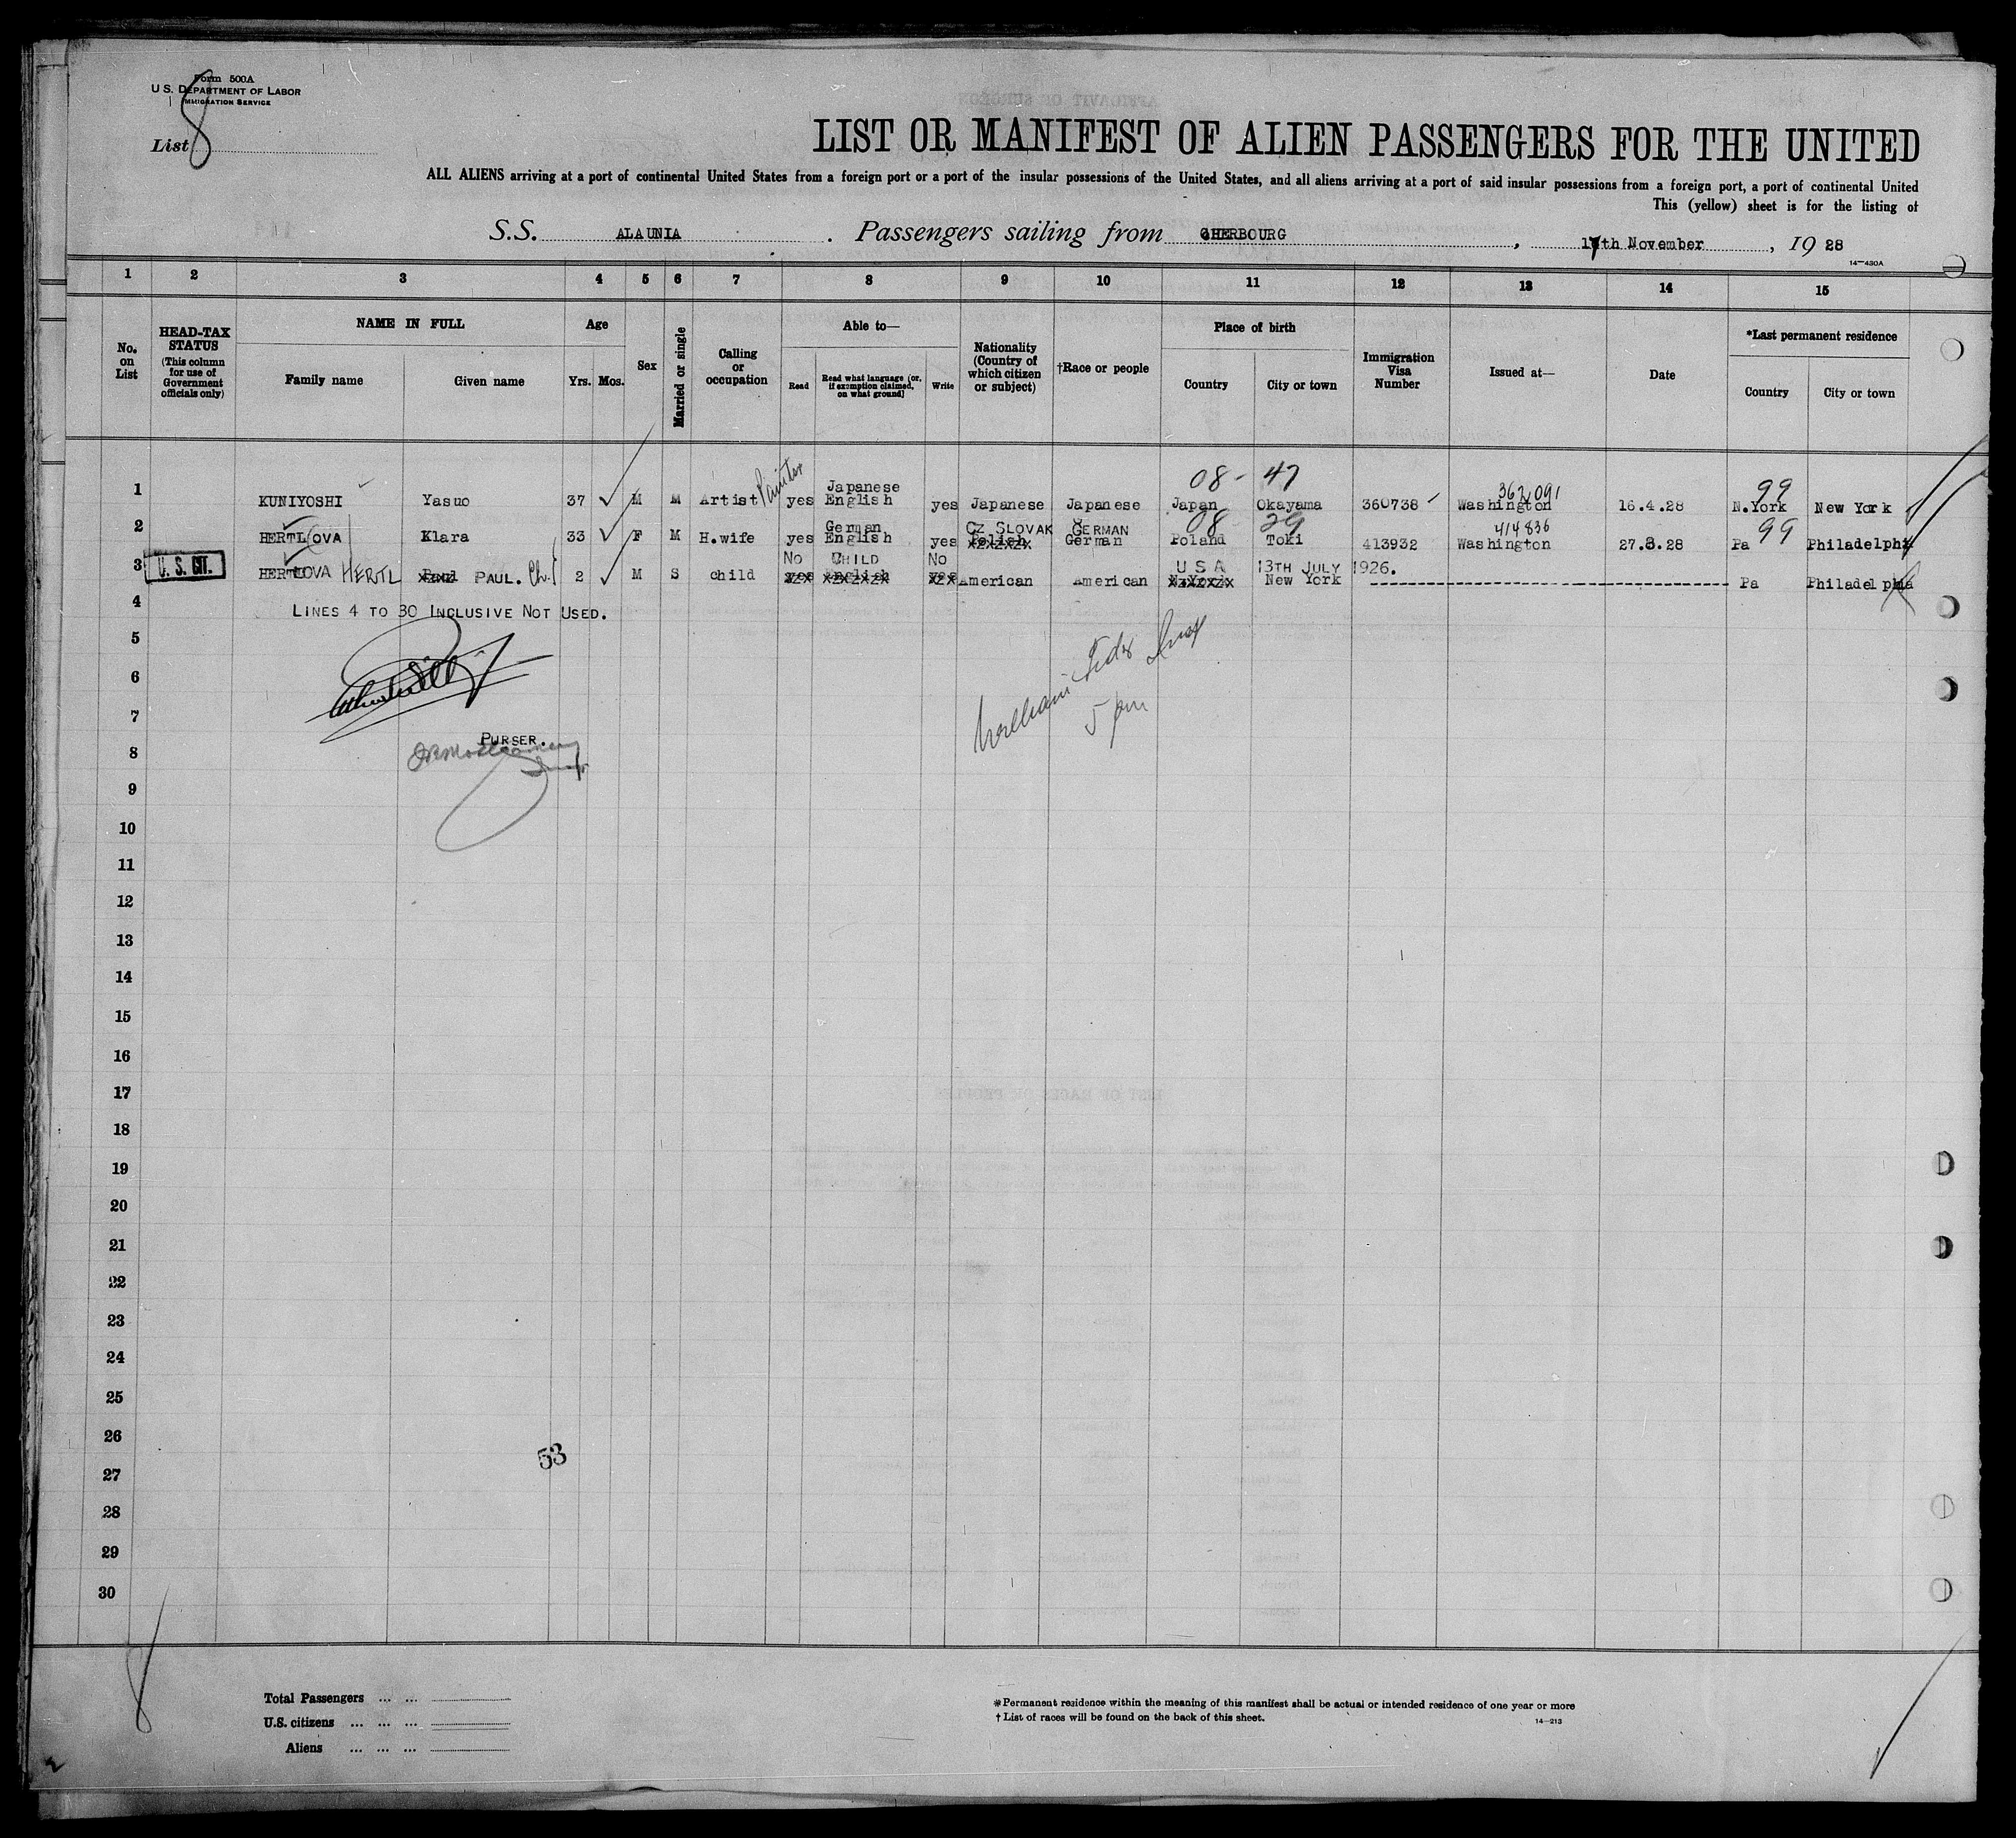 Form 500A
U.S. DEPARTMENT OF LABOR
IMMIGRATION SERVICE
List 8
LIST OR MANIFEST OF ALIEN PASSENGERS FOR THE UNITED
ALL ALIENS arriving at a port of continental United States from a foreign port or a port of the insular possessions of the United States, and all aliens arriving at a port of said insular possessions from a foreign port, a port of continental United
This (yellow) sheet is for the listing of
S.S. ALAUNIA . Passengers sailing from CHERBOURG , 17th November , 19 28
14—430A
1 2 3 4 5 6 7 8 9 10 11 12 13 14 15
No. on List
HEAD-TAX STATUS (This column for use of Government officials only)
NAME IN FULL
Family name Given name
Age
Yrs. Mos.
Sex
Married or single
Calling or occupation
Able to—
Read Read what language (or, if exemption claimed, on what ground) Write
Nationality (Country of which citizen or subject)
†Race or people
Place of birth
Country City or town
Immigration Visa Number
Issued at—
Date
*Last permanent residence
Country City or town
Painter Japanese 08 - 47 362091 99
1 KUNIYOSHI Yasuo 37 M M Artist yes English yes Japanese Japanese Japan Okayama 360738 Washington 16.4.28 N.York New York
German CZ SLOVAK GERMAN 08 29 414836 99
2 HERTLOVA Klara 33 F M H.wife yes English yes Polish German Poland Toki 413932 Washington 27.8.28 Pa Philadelphia
NO CHILD NO U S A 13TH JULY 1926.
3 U. S. CIT. HERTLOVA HERTL Paul PAUL. Ch. 2 M S child yes English yes American American N.York New York Pa Philadelphia
4 LINES 4 TO 30 INCLUSIVE NOT USED.
5
6
7
PURSER.
5 pm
8
9
10
11
12
13
14
15
16
17
18
19
20
21
22
23
24
25
26
53
27
28
29
30
8
Total Passengers ... ...
U.S. citizens ... ... ...
Aliens ... ... ...
*Permanent residence within the meaning of this manifest shall be actual or intended residence of one year or more
† List of races will be found on the back of this sheet.
14—213